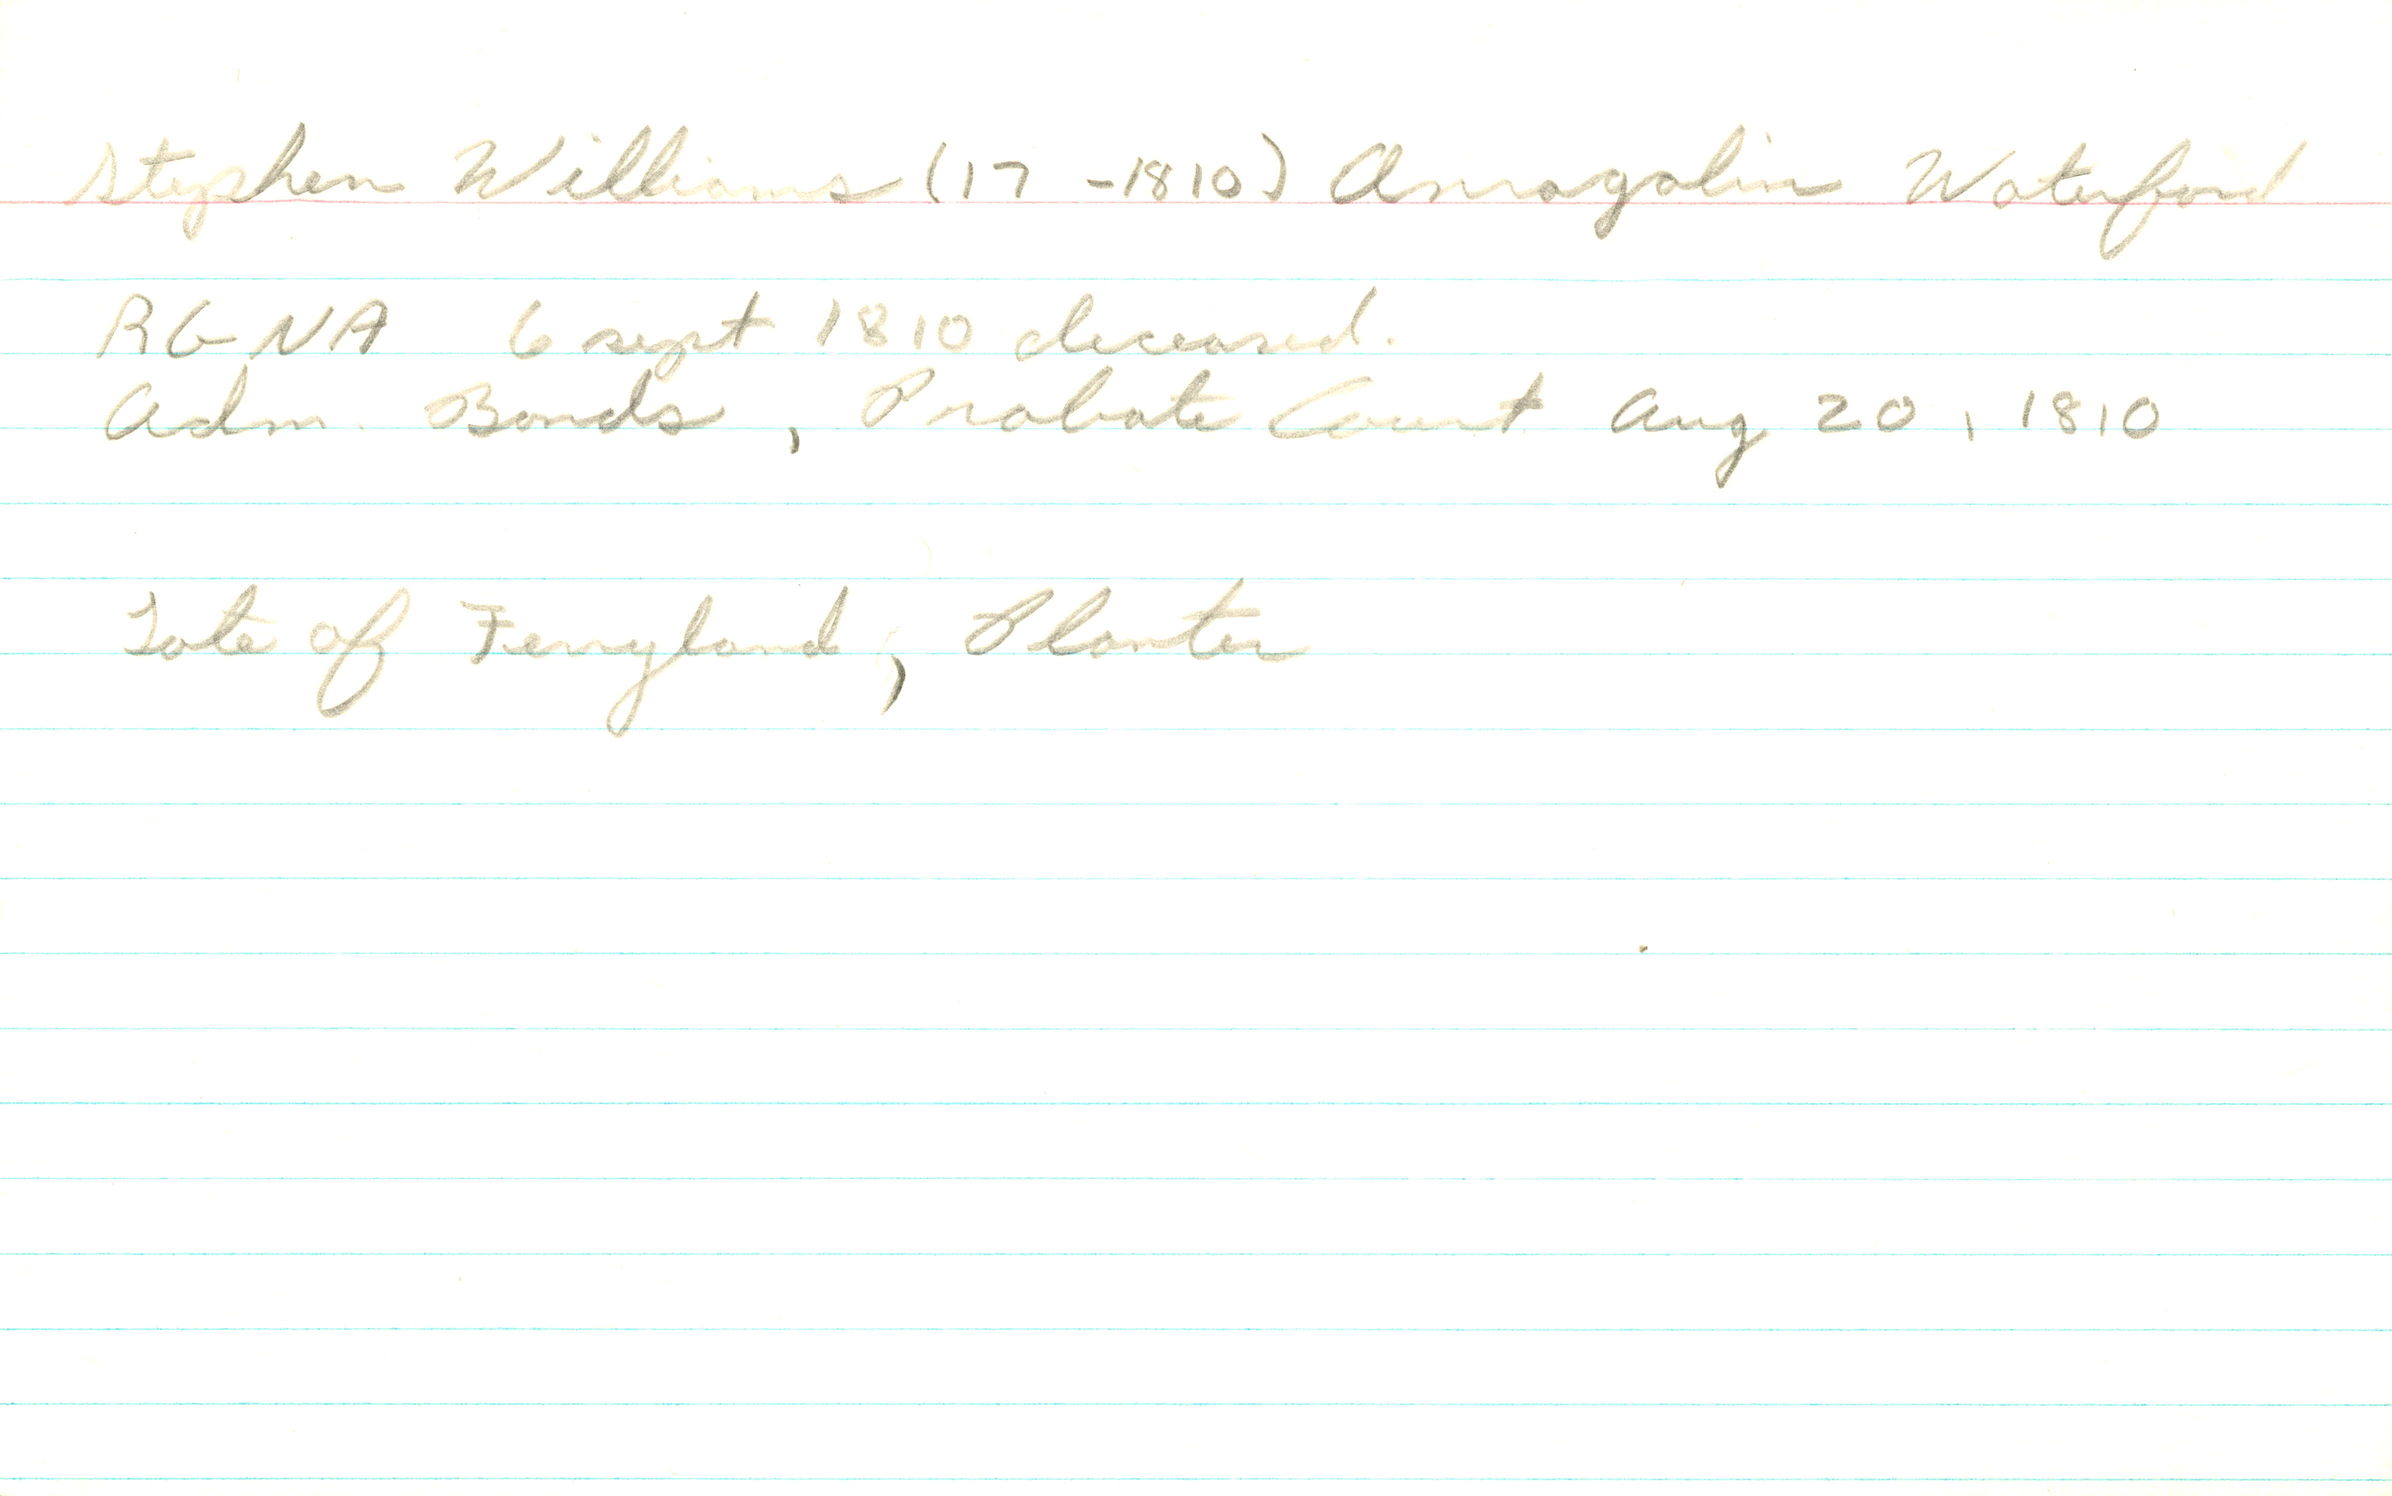 Stephen Williams (17 -1810) Amogalin Waterford
RG NA 6 sept 1810 deceased.
Adm. Bonds, Probate Court Aug 20, 1810
Late of Ferryland, Planter